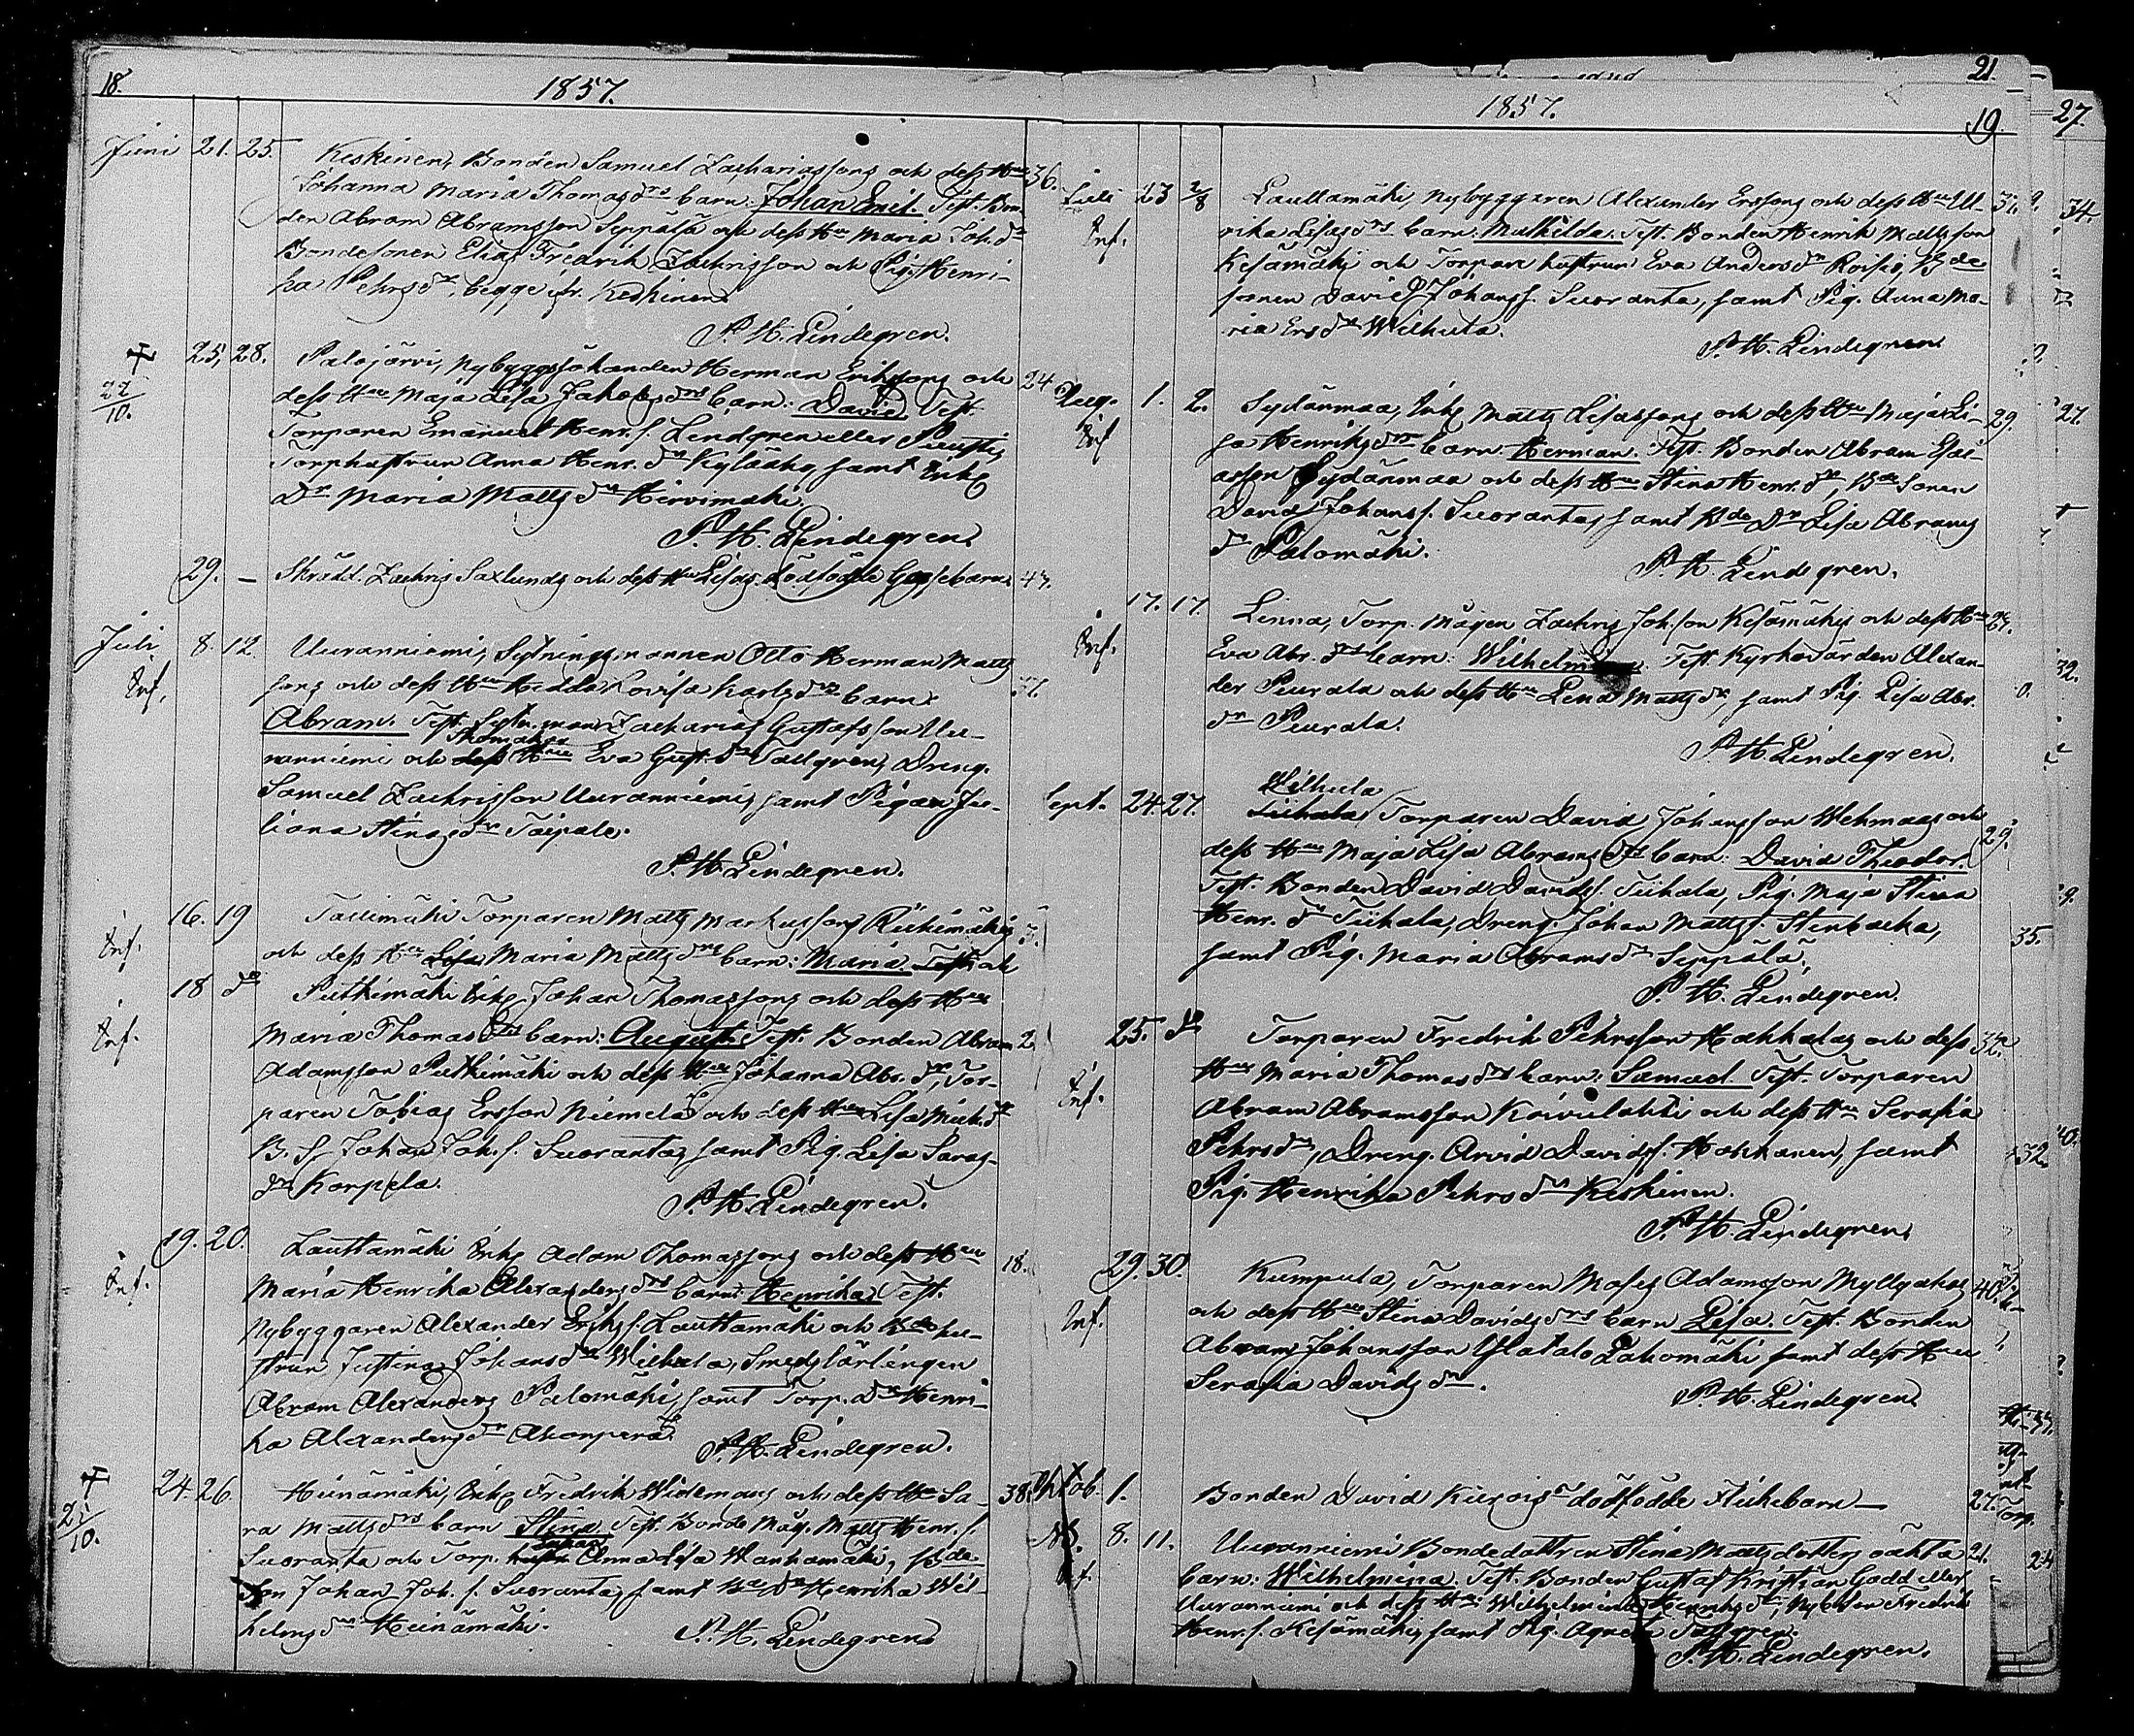 18.
1857.
Juni 21. 25. Keskinen, Bonden Samuel Zachariassons och dess Hus 36.
Johanna Maria Thomasdrs barn: Johan Emil. Test. Bon-
den Abram Abramsson Seppälä och dess Hu Maria Joh. dr
Bondesonen Elias Fredrik Zachrisson och Pig. Henri-
ka Pehrsdr, begge fr. Keskinen.
P. H. Lindegren.
† 22/10. 25. 28. Palojärvi, Nybyggsåboanden Herman Erikssons och 24
dess Hus Maja Lisa Jakobsdrs barn: David. Test.
Torparen Emanuel Henr. s. Lindgren eller
Torphustrun Anna Henr. dr samt Inh.
Dr Maria Mattsdr Hirvimäki.
P. H. Lindegren.
29. — Skrädd. Zachris Saxlunds och dess Hus Lisas dödfödde Gossebarn. 43.
Juli 8. 12. Uuranniemi, Sytningsmannen Otto Herman Matts
Inf.
sons och dess Hus Hedda Lovisa Karlsdrs barn: 31.
Abram. Test. Sytn. man Zacharias Gustafsson Uu-
ranniemi och dess Hu Eva Gust. dr Tallgren, Dreng.
Samuel Zachrisson Uuranniemi, samt Pigan Ju-
liana Stinasdr Taipale.
P. H. Lindegren.
Inf. 16. 19 Torparen Matts Markussons Riihimäkis
och dess Hus Lisa Maria Mattsdrs barn: Maria. Test. och
Inf. 18 do Putkimäki Inh. Johan Thomassons och dess Hus
Maria Thomasdrs barn: August. Test. Bonden Abram 2.
Adamsson Putkimäki och dess Hu Johanna Abr. dr, Tor-
paren Tobias Ersson Niemelä och dess Hu Lisa Mick. dr
B. S. Johan Joh. s. Suoranta, samt Pig. Lisa Saras-
dr Korpela.
P. H. Lindegren.
Inf. 19. 20. Lauttamäki Inh. Adam Thomassons och dess Hus 18.
Maria Henrika Alexandersdrs barn: Henrika. Test.
Nybyggaren Alexander Eriks s. Lauttamäki och Bde hu-
strun Justina Johansdr Wilhula, Smedslärlingen
Abram Alexanders Palomäki, samt Torp. Dr Henri-
ka Alexandersdr Ahonperä.
P. H. Lindegren.
† 21/10. 24. 26. Heinämäki, Inh. Fredrik Widemans och dess Hus Sa- 38.
ra Mattsdrs barn Stina. Test. Bonde Måg. Matts Henr. s.
Suoranta och Torp. Anna Lisa Wanhamäki, Bde
son Johan Joh. s. Suoranta, samt Bde Dr Henrika Wil-
helmsdr Heinämäki.
P. H. Lindegren.
21
1857.
19.
Juli 23 2/8 Lauttamäki, Nybyggaren Alexander Erssons och dess Hus Ul- 31.
Inf.
rika Lisasdrs barn: Mathilda. Test. Bonden Henrik Mattsson
Kesämäki och Torpare hustrun Eva Andersdr Bde
sonen David Johanss. Suoranta, samt Pig. Anna Ma-
ria Ersdr Wilhula.
P. H. Lindegren.
Aug. 1. 2. Sydänmaa, Inh. Matts Lisassons och dess Hus Maja Li- 29.
Inf.
sa Henriksdrs barn: Herman. Test. Bonden Abram Esai-
asson Sydänmaa och dess Hu Stina Henr. dr, Bde Sonen
David Johans s. Suoranta, samt Bde Dr Lisa Abrams
dr Palomäki.
P. H. Lindegren.
Inf. 17. 17. Linna, Torp. Mågen Zachris Joh. son Kesämäkis och dess Hus
Eva Abr. drs barn: Wilhelm Test. Kyrkovärden Alexan-
der Peurala och dess Hu Lena Mattsdr, samt Pig. Lisa Abr.
dr Peurala.
P. H. Lindegren.
Wilhula
Sept. 24. 27. Tiihala, Torparen David Johansson Wehmaas och 29.
dess Hus Maja Lisa Abramsdrs barn: David Theodor.
Test. Bonden David Davids s. Tiihala, Pig. Maja Stina
Henr. dr Tiihala, Dreng. Johan Matts s. Stenbacka,
samt Pig. Maria Abramsdr Seppälä.
P. H. Lindegren.
Inf. 25. do Torparen Fredrik Pehrsson Hakkalas och dess 32.
Hus Maria Thomasdrs barn: Samuel. Test. Torparen
Abram Abramsson Koivulahti och dess Hu Serafia
Pehrsdr, Dreng. Arvid Davids s. Hakkanen, samt
Pig. Henrika Pehrsdr Keskinen.
P. H. Lindegren.
Inf. 29. 30. Kumpula, Torparen Moses Adamsson Myllyahos 40.
och dess Hus Stina Davidsdrs barn Lisa. Test. Bonden
Abram Johansson Ylatalo Lahomäki samt dess Hu
Serafia Davidsdr.
P. H. Lindegren.
Oktob. 1. Bonden David dödfödde Flickebarn — 27.
NB. 8. 11. Uuranniemi Bondedottren Stina Mattsdotters oäkta 21.
barn: Wilhelmina. Test. Bonden Gustaf Kristian Gadd eller
Uuranniemi och dess Hu Wilhelmina Henriksdr, Nyb. Fredrik
Henr. s. Kesämäki, samt Pig. Agneta Tallgren.
P. H. Lindegren.
27.
34.
27.
32.
35.
32.
40.
37.
24